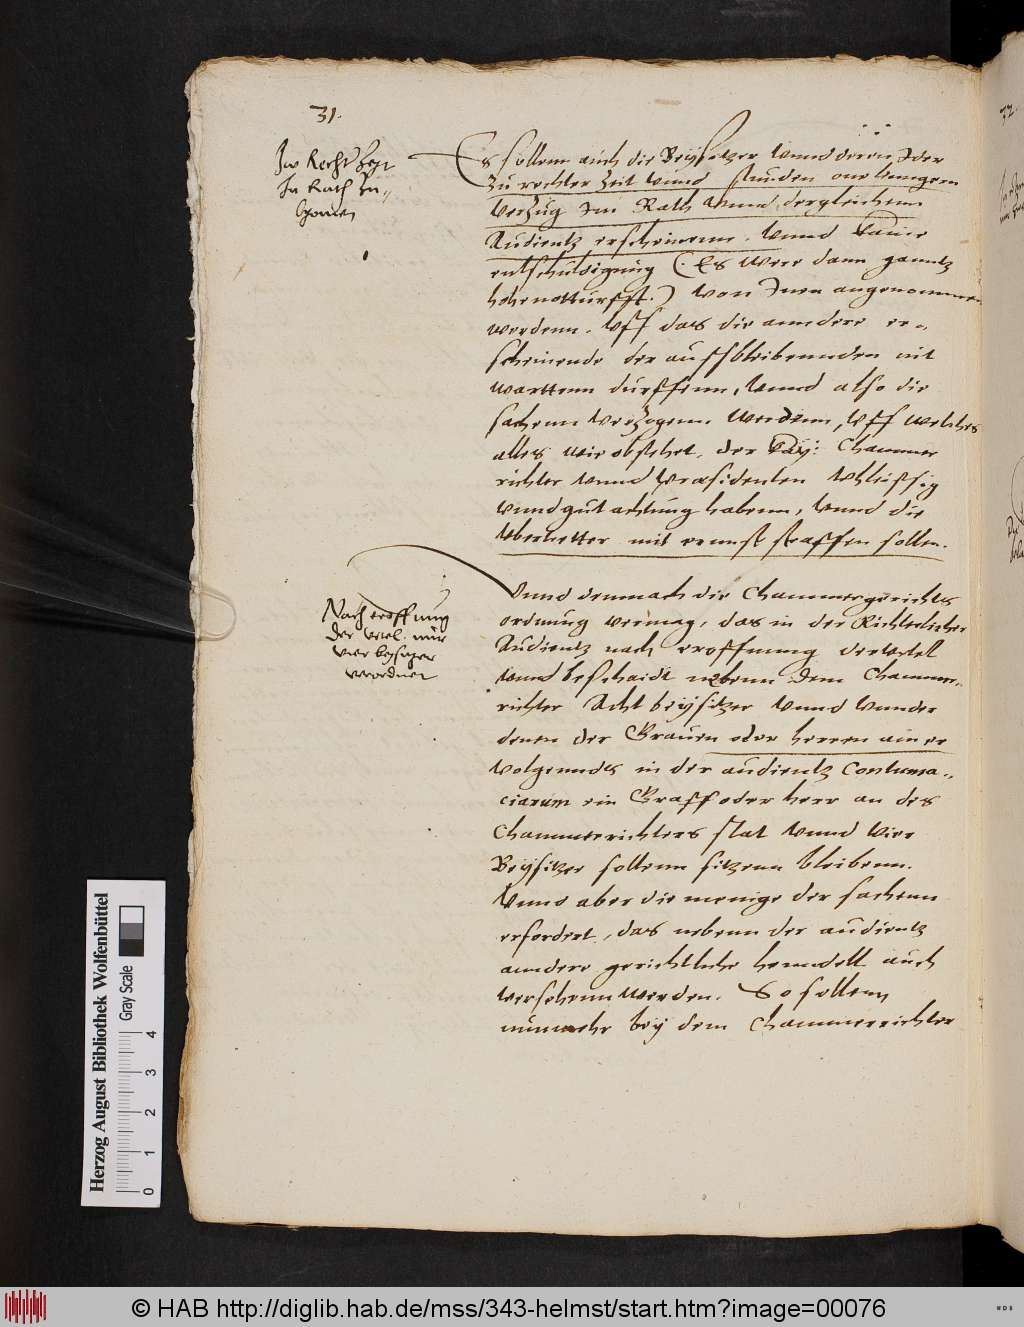 31.
Zu Recht Zeyt
In Rath Zu,,
komen
Es sollenn auch die Beysitzer vnnd deren Jder
zu rechter zeit vnnd stunden one lanngern
verzug Im Rath vnnd dergleichenn
Audientz erscheinenn. vnnd kaine
entschuldigung (Es were dann ganntz
hohenotturfft.) von Jnen angenommen
werdenn. Vff das die anndere er,,
scheinende der aussbleibennden nit
warttenn durffenn, vnnd also die
sachenn verzogenn werdenn, Vff welches
alles wie obstehet, der kay: Chammer
richter vnnd Praesidenten vleissig
vnnd gut achtung habenn, vnnd die
vbertretter mit ernnst straffen sollen.
Nach eroffnung
der vrtel. nur
vier beysizer
verordnet
Vnnd demnach die Chammergerichts
ordnung vermag, das in der Richterlicher
Audientz nach eroffnung der vrtel
vnnd bescheidt nebenn dem Chammer,,
richter Acht beysitzer vnnd vnnder
denen der Grauen oder herren ainer
volgennds in der audientz Contuma,,
ciarum ein Graff oder herr an des
Chammerrichters stat vnnd vier
Beysitzer sollenn sitzenn bleibenn.
Vnnd aber die menige der sachenn
erfordert, das nebenn der audientz
anndere gerichtliche henndell auch
versehenn werden. So sollenn
nunmehr bey dem Chammerrichter
72.
Herzog August Bibliothek Wolfenbüttel
Gray Scale
0 1 2 3 4
© HAB http://diglib.hab.de/mss/343-helmst/start.htm?image=00076
WDB